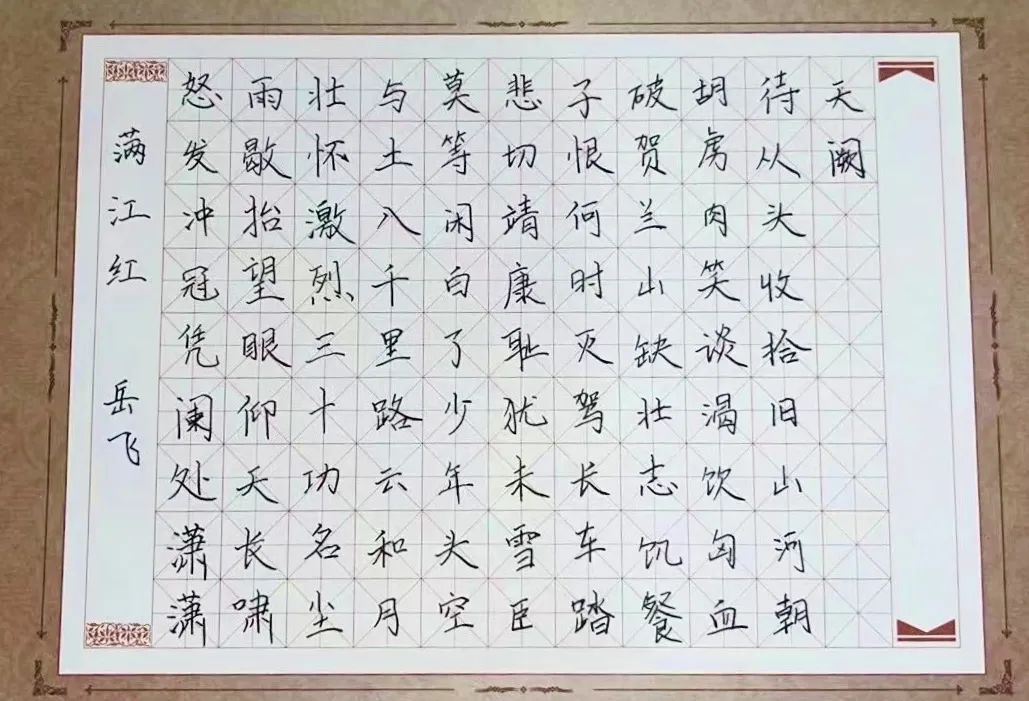 满江红 岳飞
怒发冲冠凭阑处潇潇
雨歇抬望眼仰天长啸
壮怀激烈三十功名尘
与土八千里路云和月
莫等闲白了少年头空
悲切靖康耻犹未雪臣
子恨何时灭驾长车踏
破贺兰山缺壮志饥餐
胡虏肉笑谈渴饮匈血
待从头收拾旧山河朝
天阙